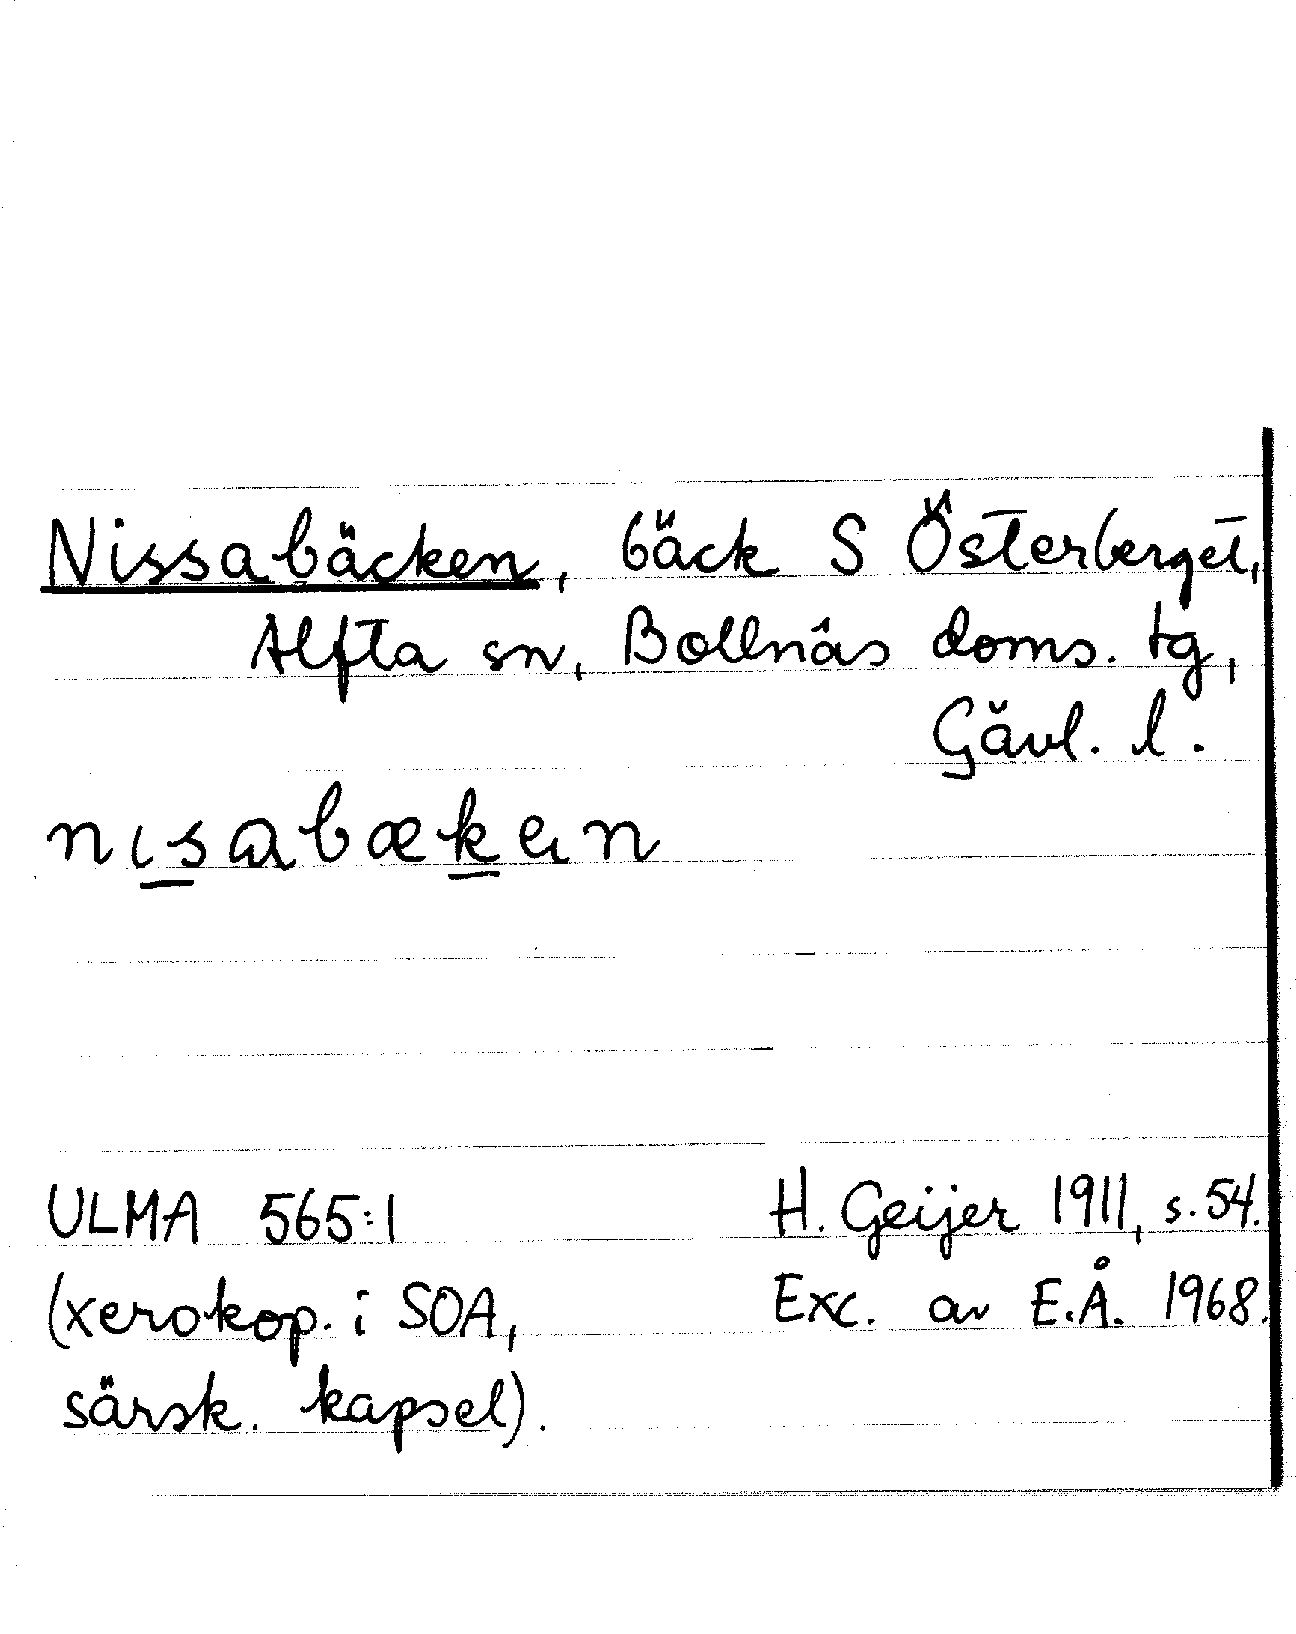 Nissabäcken, bäck S Österberget,
Alfta sn, Bollnäs doms. tg,
Gävl. l.
nɩsabæken
ULMA 565:1 H. Geijer 1911, s. 54.
(xerokop. i SOA, Exc. av E.Å. 1968.
särsk. kapsel).